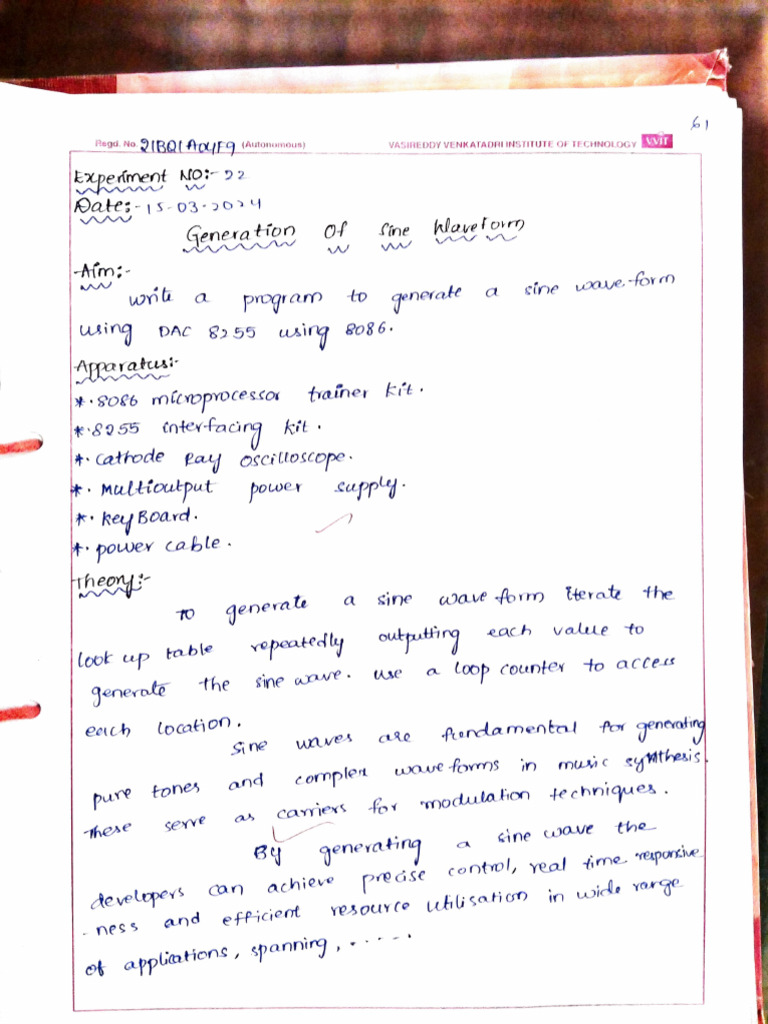 61
Regd. No. 21BQ1A04F9 (Autonomous) VASIREDDY VENKATADRI INSTITUTE OF TECHNOLOGY VVIT
Experiment NO:- 22
Date:- 15-03-2024
Generation Of Sine Waveform
Aim:-
Write a program to generate a sine wave-form
using DAC 8255 using 8086.
Apparatus:-
*. 8086 microprocessor trainer kit.
*. 8255 interfacing kit.
*. Cathode Ray oscilloscope.
*. Multioutput power supply.
*. Key Board.
*. power cable.
Theory:-
To generate a sine wave form iterate the
look up table repeatedly outputting each value to
generate the sine wave. use a loop counter to access
each location.
Sine waves are fundamental for generating
pure tones and complex waveforms in music synthesis.
These serve as carriers for modulation techniques.
By generating a sine wave the
developers can achieve precise control, real time responsive
-ness and efficient resource utilisation in wide range
of applications, spanning, ......